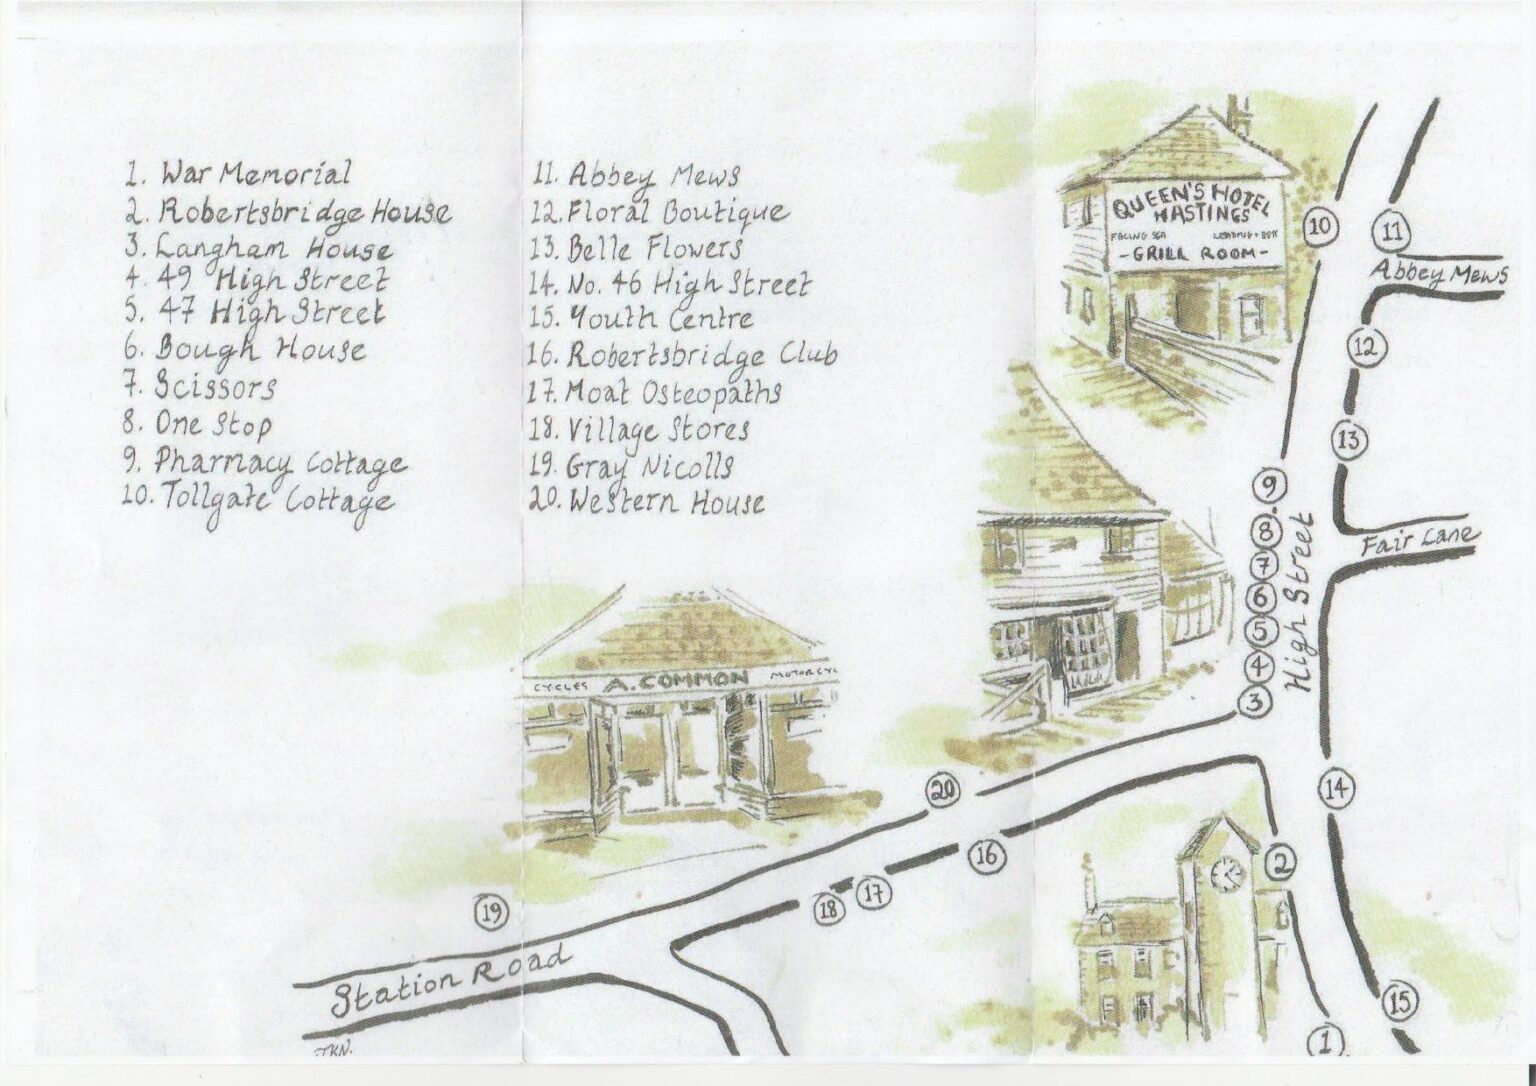 1. War Memorial
2. Robertsbridge House
3. Langham House
4. 49 High Street
5. 47 High Street
6. Bough House
7. Scissors
8. One Stop
9. Pharmacy Cottage
10. Tollgate Cottage
11. Abbey Mews
12. Floral Boutique
13. Belle Flowers
14. No. 46 High Street
15. Youth Centre
16. Robertsbridge Club
17. Moat Osteopaths
18. Village Stores
19. Gray Nicolls
20. Western House
QUEEN'S HOTEL
HASTINGS
FACING SEA
-GRILL ROOM-
10
11
Abbey Mews
12
13
9
8
Fair Lane
7
6
5
4
3
High Street
CYCLES A. COMMON MOTORCYC
14
20
16
2
17
18
19
Station Road
15
1
JKN.